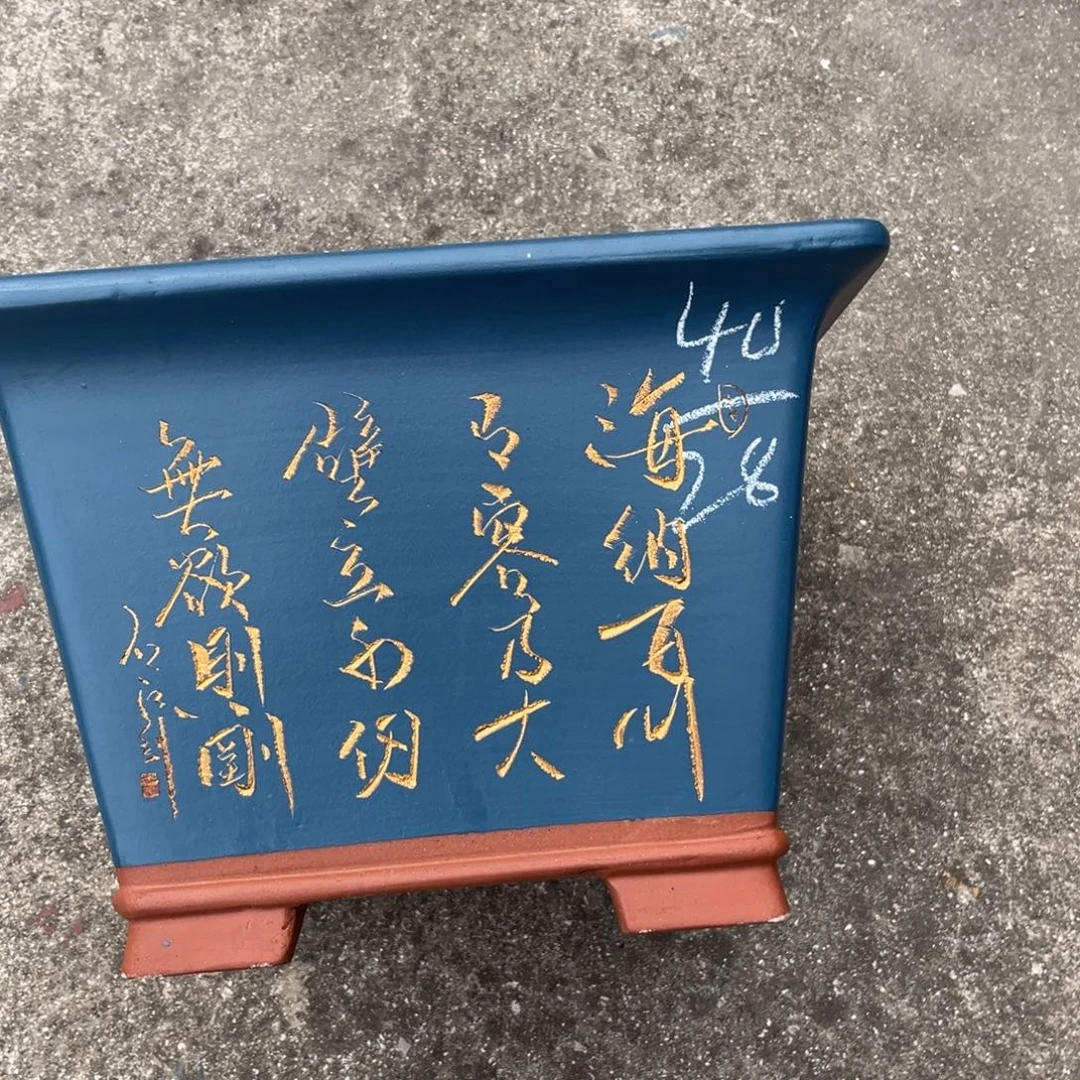 海納百川
有容乃大
壁立千仞
無欲則剛
40
28